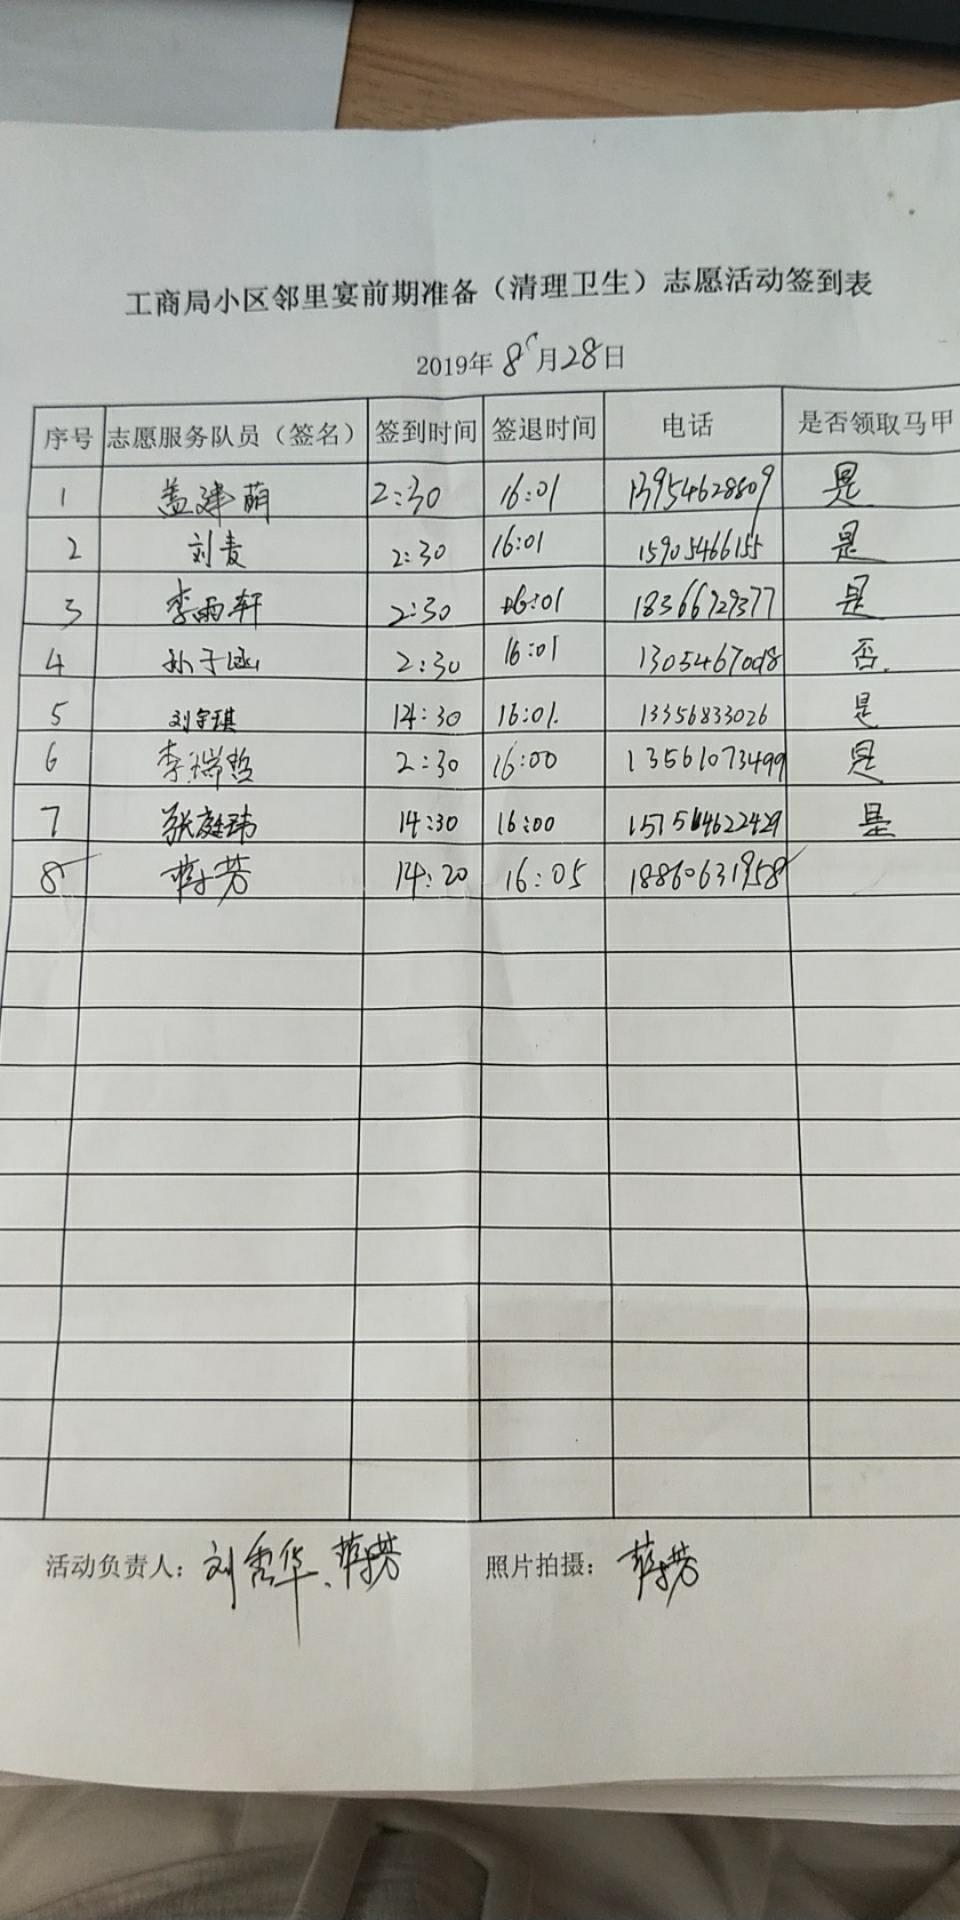 工商局小区邻里宴前期准备（清理卫生）志愿活动签到表
2019年 8月28日
序号 志愿服务队员（签名） 签到时间 签退时间 电话 是否领取马甲
1 盖建萌 2:30 16:01 13954628609 是
2 刘麦 2:30 16:01 15905466155 是
3 李雨轩 2:30 16:01 18366729377 是
4 孙子涵 2:30 16:01 否
5 刘宇琪 14:30 16:01. 13356833026 是
6 李瑞哲 2:30 16:00 13561073499 是
7 张庭玮 14:30 16:00 是
8 薛芳 14:20 16:05 18860631958
活动负责人：刘秀华、薛芳 照片拍摄：薛芳